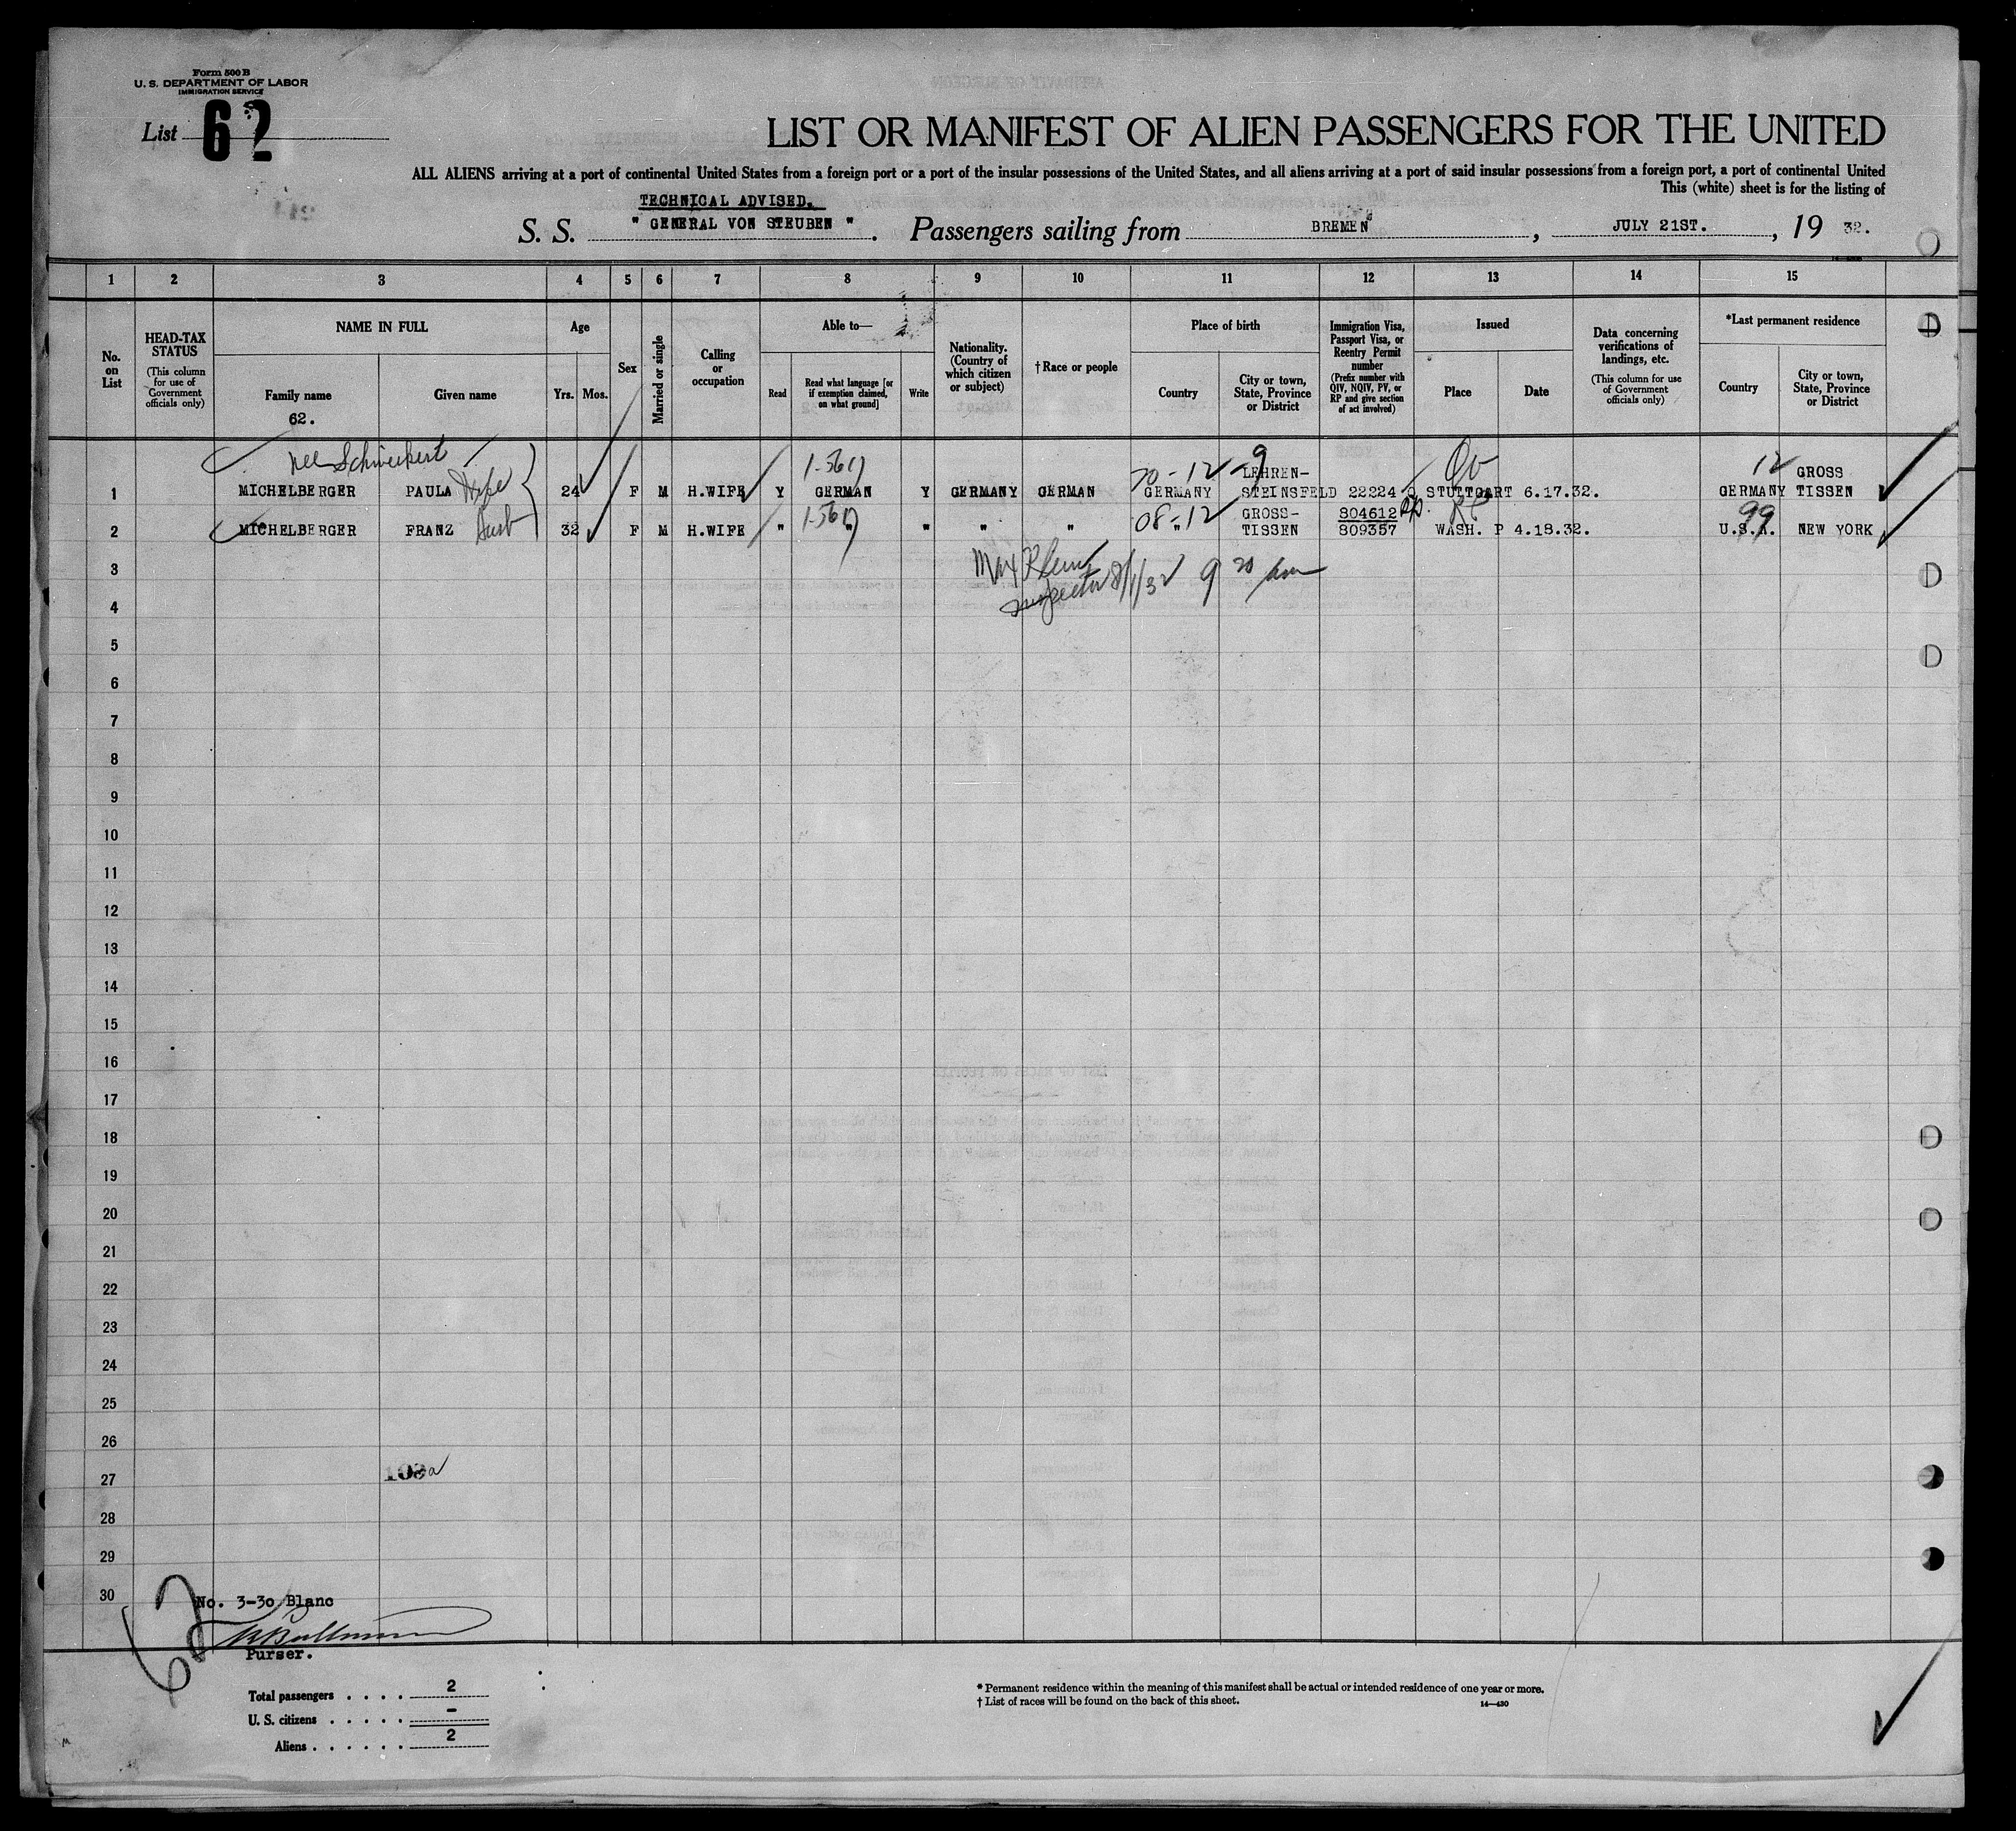 Form 500 B
U. S. DEPARTMENT OF LABOR
IMMIGRATION SERVICE
List 62
LIST OR MANIFEST OF ALIEN PASSENGERS FOR THE UNITED
ALL ALIENS arriving at a port of continental United States from a foreign port or a port of the insular possessions of the United States, and all aliens arriving at a port of said insular possessions from a foreign port, a port of continental United
This (white) sheet is for the listing of
TECHNICAL ADVISED.
S. S. " GENERAL VON STEUBEN ". Passengers sailing from BREMEN, JULY 21ST., 19 32.
1 2 3 4 5 6 7 8 9 10 11 12 13 14 15
No. on List
HEAD-TAX STATUS
(This column for use of Government officials only)
NAME IN FULL
Family name
62.
Given name
Age
Yrs. Mos.
Sex
Married or single
Calling or occupation
Able to—
Read
Read what language [or if exemption claimed, on what ground]
Write
Nationality. (Country of which citizen or subject)
† Race or people
Place of birth
Country
City or town, State, Province or District
Immigration Visa, Passport Visa, or Reentry Permit number
(Prefix number with QIV, NQIV, PV, or RP and give section of act involved)
Issued
Place
Date
Data concerning verifications of landings, etc.
(This column for use of Government officials only)
*Last permanent residence
Country
City or town, State, Province or District
nee Schweikert 1-5617 70-12-9 LEHREN- Qv 12 GROSS
1 MICHELBERGER PAULA Wife 24 F M H.WIFE Y GERMAN Y GERMANY GERMAN GERMANY STEINSFELD 22224 STUTTGART 6.17.32. GERMANY TISSEN
1-5617 08-12 GROSS- 804612 RP 99
2 MICHELBERGER FRANZ Husb 32 F M H.WIFE " " " " " " TISSEN 809357 WASH. P 4.18.32. U.S.A. NEW YORK
3
Inspector 8/1/32 9 20 am
4
5
6
7
8
9
10
11
12
13
14
15
16
17
18
19
20
21
22
23
24
25
26
27
28
29
30
No. 3-30 Blanc
Purser.
62
Total passengers . . . . 2
U. S. citizens . . . . . -
Aliens . . . . . . 2
* Permanent residence within the meaning of this manifest shall be actual or intended residence of one year or more.
† List of races will be found on the back of this sheet.
14—430